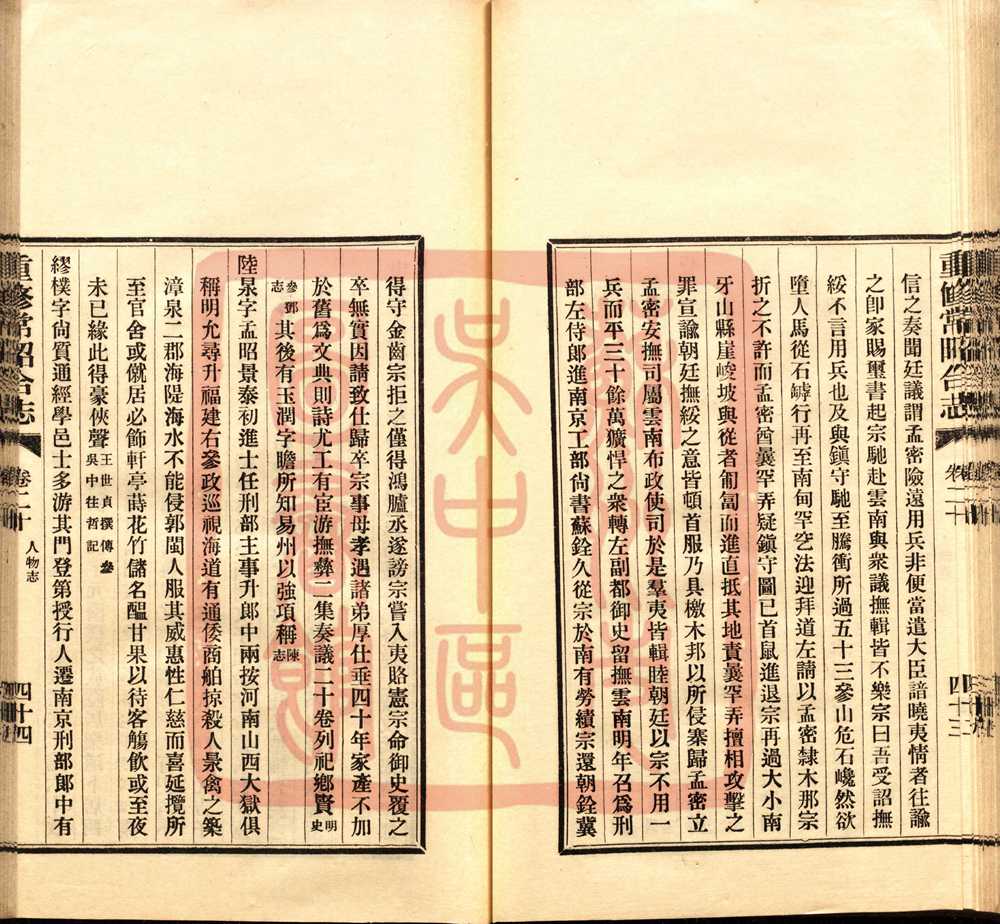 信之奏聞廷議謂孟密險遠用兵非便當遣大臣諳曉夷情者往諭
之卽家賜璽書起宗馳赴雲南與衆議撫輯皆不樂宗曰吾受詔撫
綏不言用兵也及與鎮守馳至騰衝所過五十三參山危石巉然欲
墮人馬從石罅行再至南甸罕空法迎拜道左請以孟密隸木那宗
折之不許而孟密酋曩罕弄疑鎮守圖已首鼠進退宗再過大小南
牙山縣崖峻坡與從者匍匐而進直抵其地責曩罕弄擅相攻擊之
罪宣諭朝廷撫綏之意皆頓首服乃具檄木邦以所侵寨歸孟密立
孟密安撫司屬雲南布政使司於是羣夷皆輯睦朝廷以宗不用一
兵而平三十餘萬獷悍之衆轉左副都御史留撫雲南明年召爲刑
部左侍郎進南京工部尙書蘇銓久從宗於南有勞績宗還朝銓冀
重修常昭合志
卷二十
四十三
得守金齒宗拒之僅得鴻臚丞遂謗宗嘗入夷賂憲宗命御史覆之
卒無實因請致仕歸卒宗事母孝遇諸弟厚仕垂四十年家產不加
於舊爲文典則詩尤工有宦游撫彝二集奏議二十卷列祀鄉賢明史
參鄧志其後有玉潤字瞻所知易州以強項稱陳志
陸杲字孟昭景泰初進士任刑部主事升郎中兩按河南山西大獄俱
稱明允尋升福建右參政巡視海道有通倭商舶掠殺人杲禽之築
漳泉二郡海隄海水不能侵郭閩人服其威惠性仁慈而喜延攬所
至官舍或僦居必飾軒亭蒔花竹儲名醞甘果以待客觴飮或至夜
未已緣此得豪俠聲王世貞撰傳參吳中往哲記
繆樸字尙質通經學邑士多游其門登第授行人遷南京刑部郎中有
重修常昭合志
卷二十
人物志
四十四